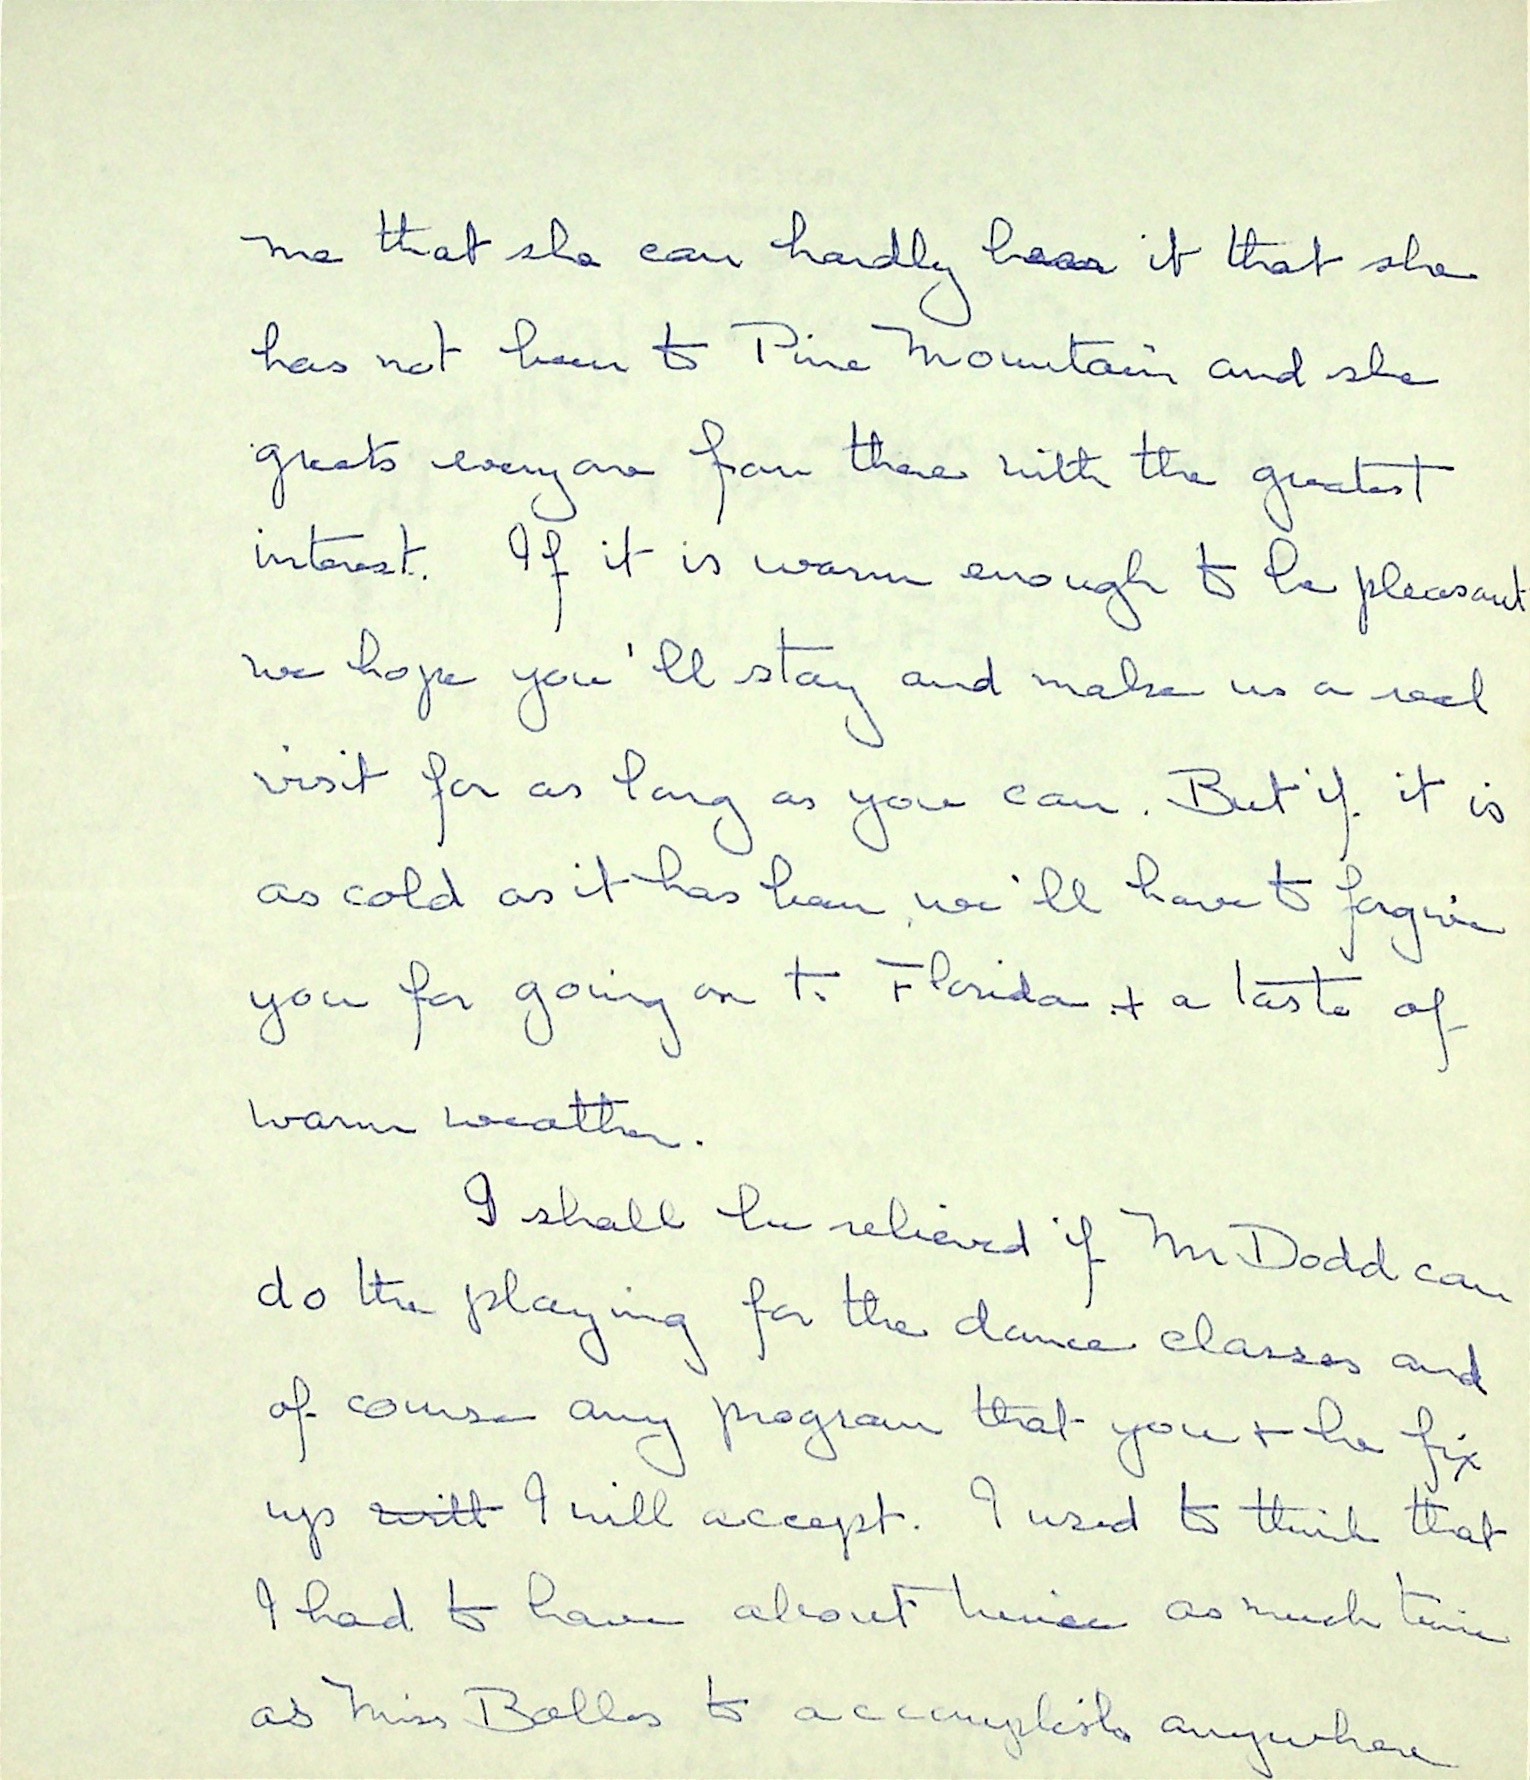 me that she can hardly bear it that she
has not been to Pine Mountain and she
greets everyone from there with the greatest
interest. If it is warm enough to be pleasant
we hope you'll stay and make us a real
visit for as long as you can. But if it is
as cold as it has been, we'll have to forgive
you for going on to Florida + a taste of
warm weather.
I shall be relieved if Mr Dodd can
do the playing for the dance classes and
of course any program that you + he fix
up will I will accept. I used to think that
I had to have about twice as much time
as Miss Bolles to accomplish anywhere